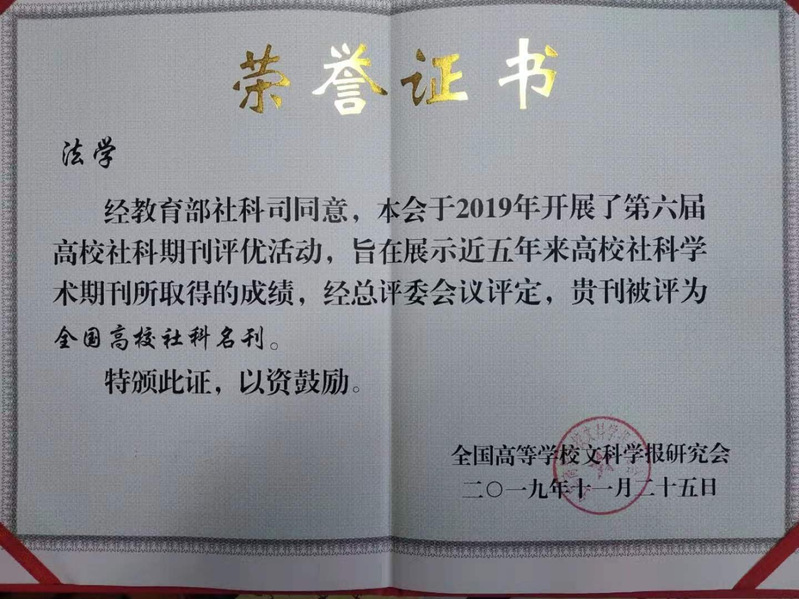 荣誉证书
法学
经教育部社科司同意，本会于2019年开展了第六届
高校社科期刊评优活动，旨在展示近五年来高校社科学
术期刊所取得的成绩，经总评委会议评定，贵刊被评为
全国高校社科名刊。
特颁此证，以资鼓励。
全国高等学校文科学报研究会
二〇一九年十一月二十五日